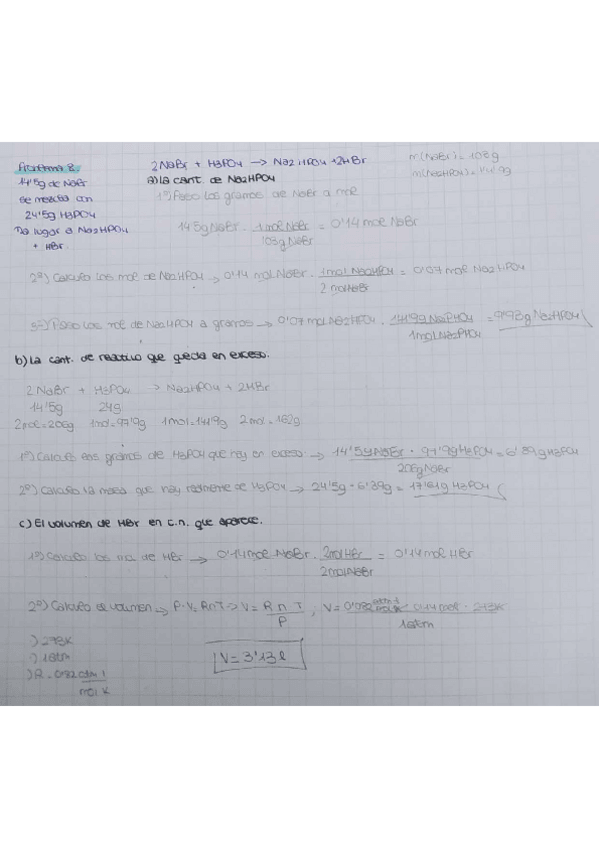 Problema 2.
14'5g de NaBr
se mezcla con
24'5g H3PO4
Da lugar a Na2HPO4
+ HBr.
2NaBr + H3PO4 -> Na2HPO4 + 2HBr
m(NaBr) = 103g
m(Na2HPO4) = 141'9g
a) La cant. de Na2HPO4
1º) Paso los gramos de NaBr a mol
14'5g NaBr · 1mol NaBr / 103g NaBr = 0'14 mol NaBr
2º) Calculo los mol de Na2HPO4 -> 0'14 mol NaBr · 1mol Na2HPO4 / 2 mol NaBr = 0'07 mol Na2HPO4
3º) Paso los mol de Na2HPO4 a gramos -> 0'07 mol Na2HPO4 · / 1mol = 9'93g Na2HPO4
b) La cant. de reactivo que queda en exceso.
2NaBr + H3PO4 -> Na2HPO4 + 2HBr
14'5g 24g
2mol=206g 1mol=97'9g 1mol=141'9g 2mol=162g
1º) Calculo los gramos de H3PO4 que hay en exceso -> 14'5g NaBr · 97'9g H3PO4 / 206g NaBr = 6'89g H3PO4
2º) Calculo la masa que hay realmente de H3PO4 -> 24'5g - 6'89g = 17'61g H3PO4
c) El volumen de HBr en c.n. que aparece.
1º) Calculo los mol de HBr -> 0'14 mol NaBr · 2mol HBr / 2mol NaBr = 0'14 mol HBr
2º) Calculo el volumen -> P·V=RnT -> V = R n T / P ; V = 0'082 · 0'14 mol · 273K / 1atm
) 1atm
) R = 0'082 atm l / mol K
V = 3'13 l